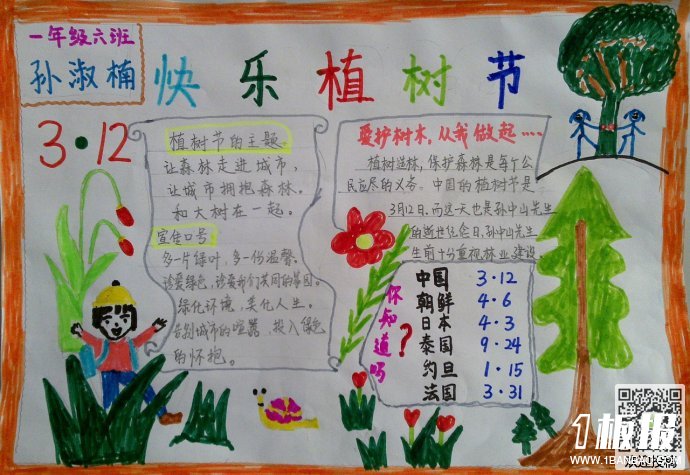 一年级六班
孙淑楠
快乐植树节
3·12
植树节的主题
让森林走进城市，
让城市拥抱森林。
和大树在一起。
宣传口号
多一片绿叶，多一份温馨。
珍爱绿色，珍爱我们共同的家园。
绿化环境，美化人生。
告别城市的喧嚣，投入绿色
的怀抱。
爱护树木，从我做起……
植树造林，保护森林是每个公
民应尽的义务。中国的植树节是
3月12日，而这一天也是孙中山先生
的逝世纪念日，孙中山先生
生前十分重视林业建设。
你知道吗？
中国 3·12
朝鲜 4·6
日本 4·3
泰国 9·24
约旦 1·15
法国 3·31
1板报
WWW.1BANBAO.COM